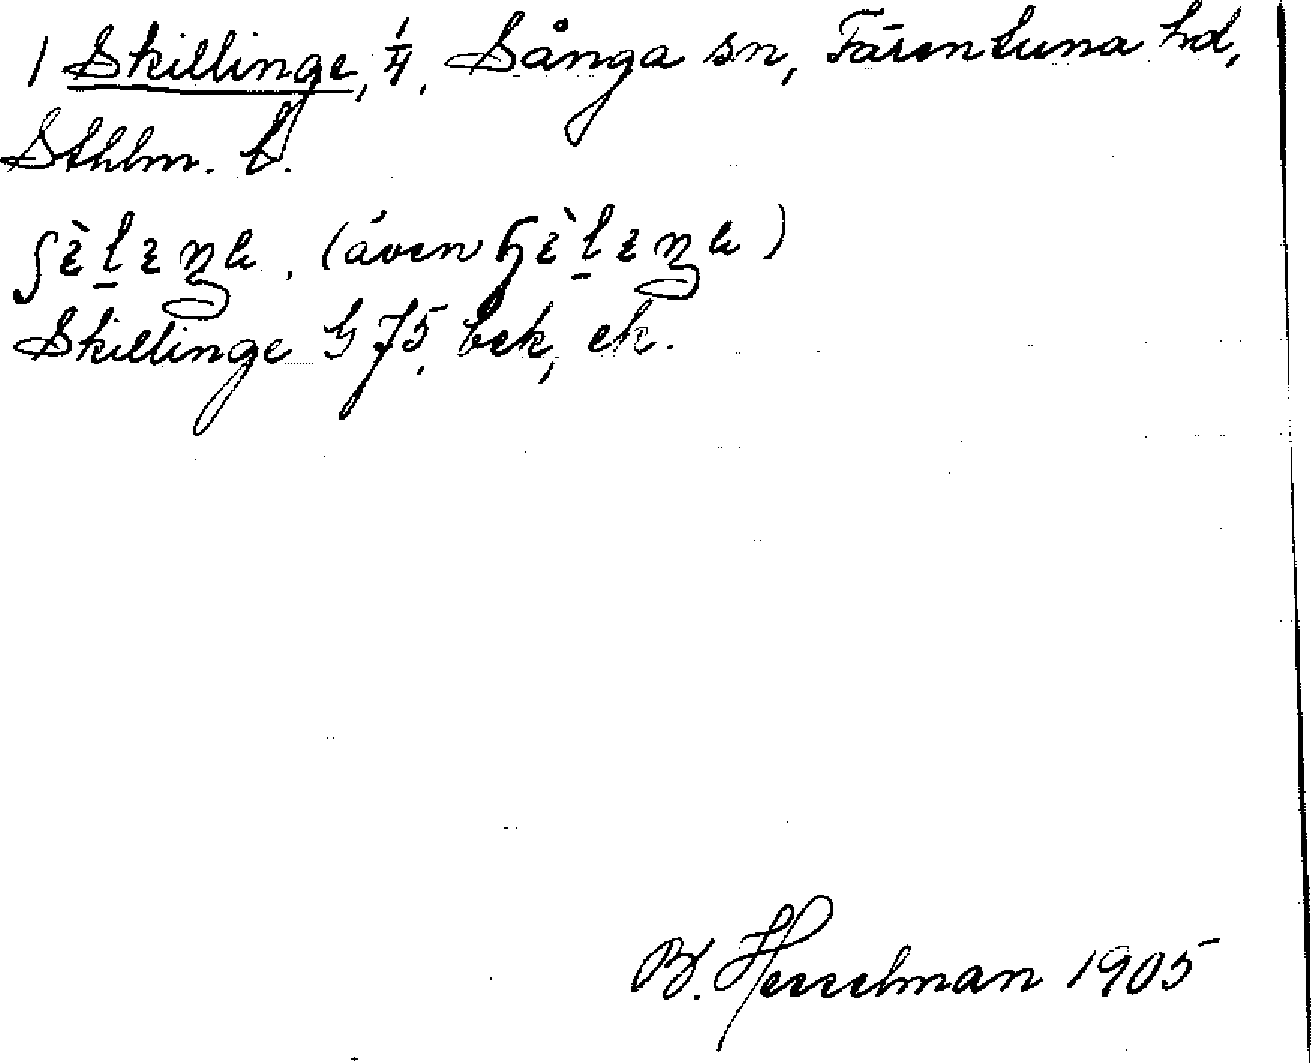 1 Skillinge, 1/4, Sånga sn, Färentuna hd,
Sthlm. l.
(även
Skillinge G 75, bek, ek.
B. Hesselman 1905